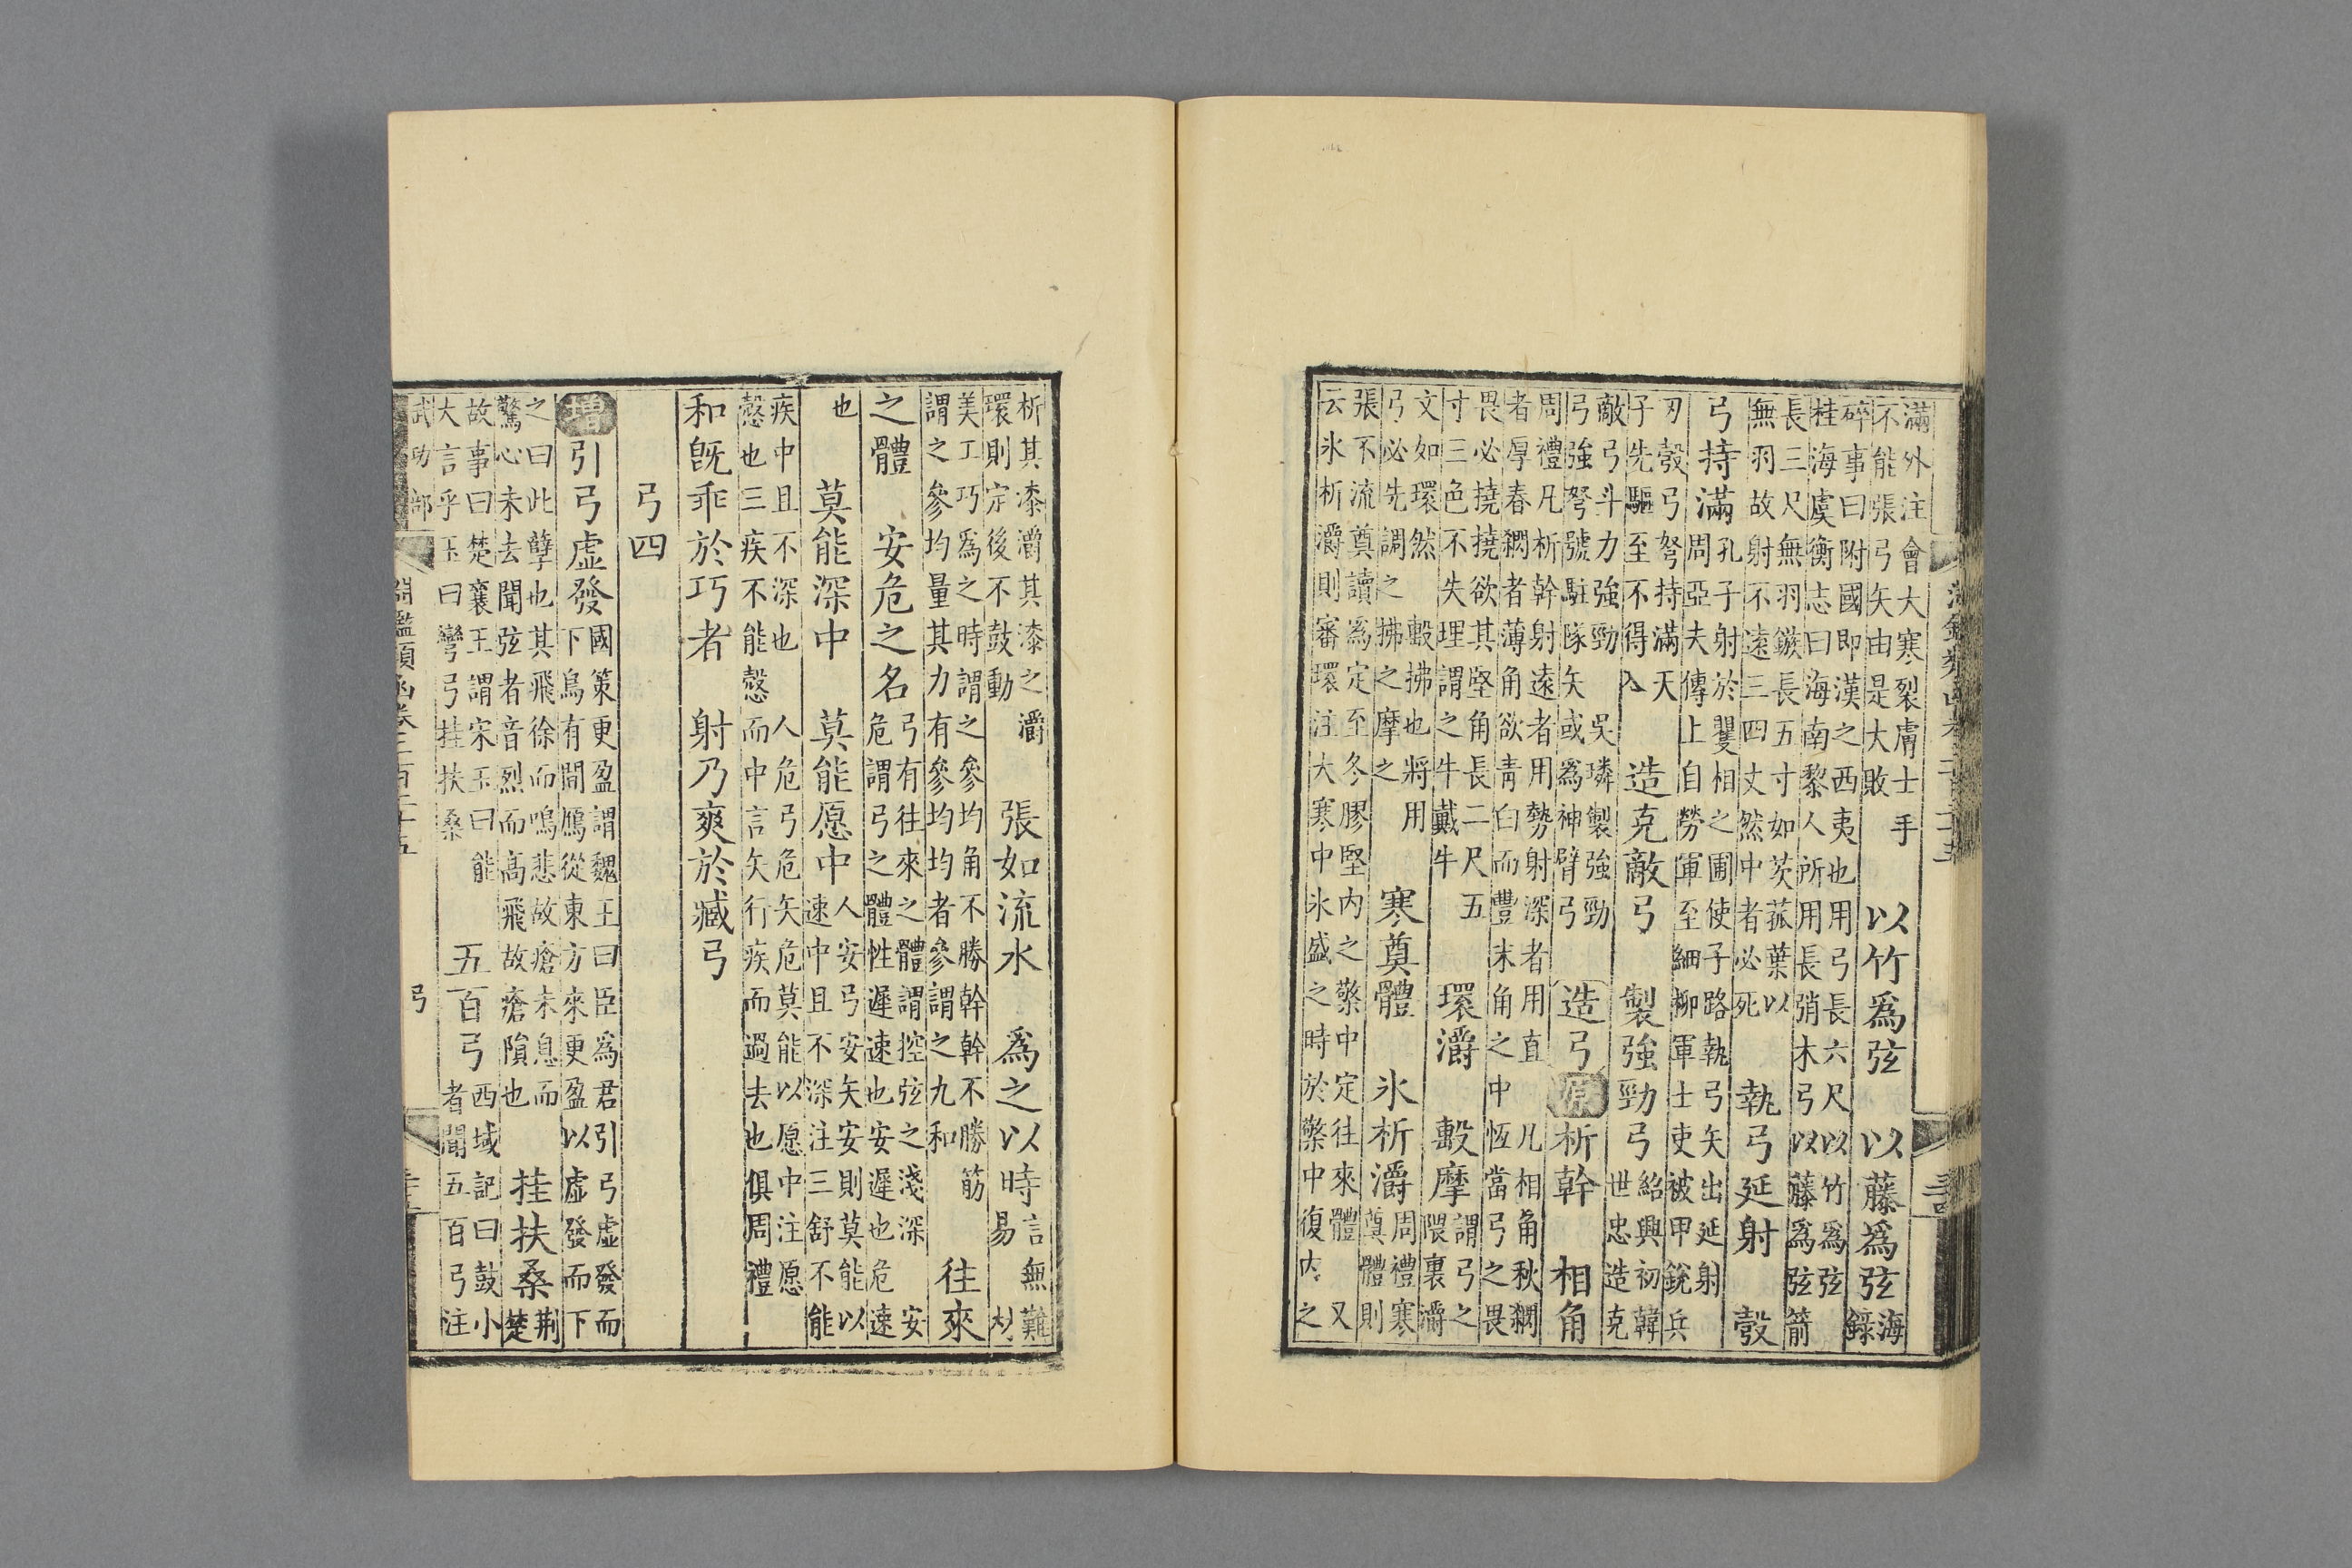 滿外注會大寒裂膚士手
不能張弓矢由是大敗
以竹爲弦　以藤爲弦
海
錄
碎事曰附國即漢之西夷也用弓長六尺以竹爲弦
桂海虞衡志曰海南黎人所用長弰木弓以藤爲弦箭
長三尺無羽鏃長五寸如茨菰葉以
無羽故射不遠三四丈然中者必死
執弓延射　彀
弓持滿
孔子射於矍相之圃使子路執弓矢出延射
周亞夫傳上自勞軍至細柳軍士吏被甲銳兵
刃彀弓弩持滿天
子先驅至不得入
造克敵弓　製強勁弓
紹興初韓
世忠造克
敵弓斗力強勁　吳璘製強勁
弓強弩號駐隊矢或爲神臂弓
造弓　原　析幹　相角
周禮凡析幹射遠者用勢射深者用直　凡相角秋閷
者厚春閷者薄角欲青白而豐末角之中恆當弓之畏
畏必撓撓欲其堅角長二尺五
寸三色不失理謂之牛戴牛
環灂　㲉摩
謂弓之
隈裏灂
文如環然　㲉拂也將用
弓必先調之拂之摩之
寒奠體　氷析灂
周禮寒
奠體則
張不流奠讀爲定至冬膠堅内之檠中定往來體　又
云氷析灂則審環注大寒中氷盛之時於檠中復内之
析其漆灂其漆之灂
環則定後不鼓動
張如流水　爲之以時
言無難
易　材
美工巧爲之時謂之參均角不勝幹幹不勝筋
謂之參均量其力有參均均者參謂之九和
往來
之體　安危之名
弓有往來之體謂控弦之淺深　安
危謂弓之體性遲速也安遲也危速
也
莫能深中　莫能愿中
人安弓安矢安則莫能以
速中且不深注三舒不能
疾中且不深也　人危弓危矢危莫能以愿中注愿
慤也三疾不能慤而中言矢行疾而過去也俱周禮
和旣乖於巧者　射乃爽於臧弓
弓四
增　引弓虛發
國策更盈謂魏王曰臣爲君引弓虛發而
下鳥有間鴈從東方來更盈以虛發而下
之曰此孽也其飛徐而鳴悲故瘡未息而
驚心未去聞弦者音烈而高飛故瘡隕也
挂扶桑
荆
楚
故事曰楚襄王謂宋玉曰能
大言乎玉曰彎弓挂扶桑
五百弓
西域記曰鼓小
者聞五百弓注
武功部
淵鑑類函卷二百二十五
弓